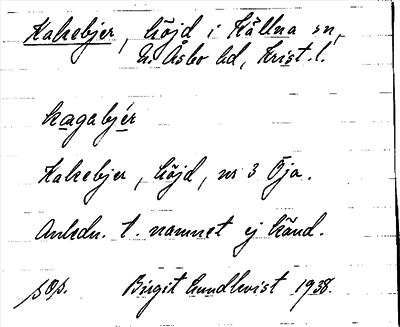 Hakebjer, höjd i Källna sn,
N. Åsbo hd, Krist. l.
hagabjér
Hakebjer, höjd, nr 3 Öja.
Anledn. t. namnet ej känd.
sOp. Birgit Lundkvist 1938.